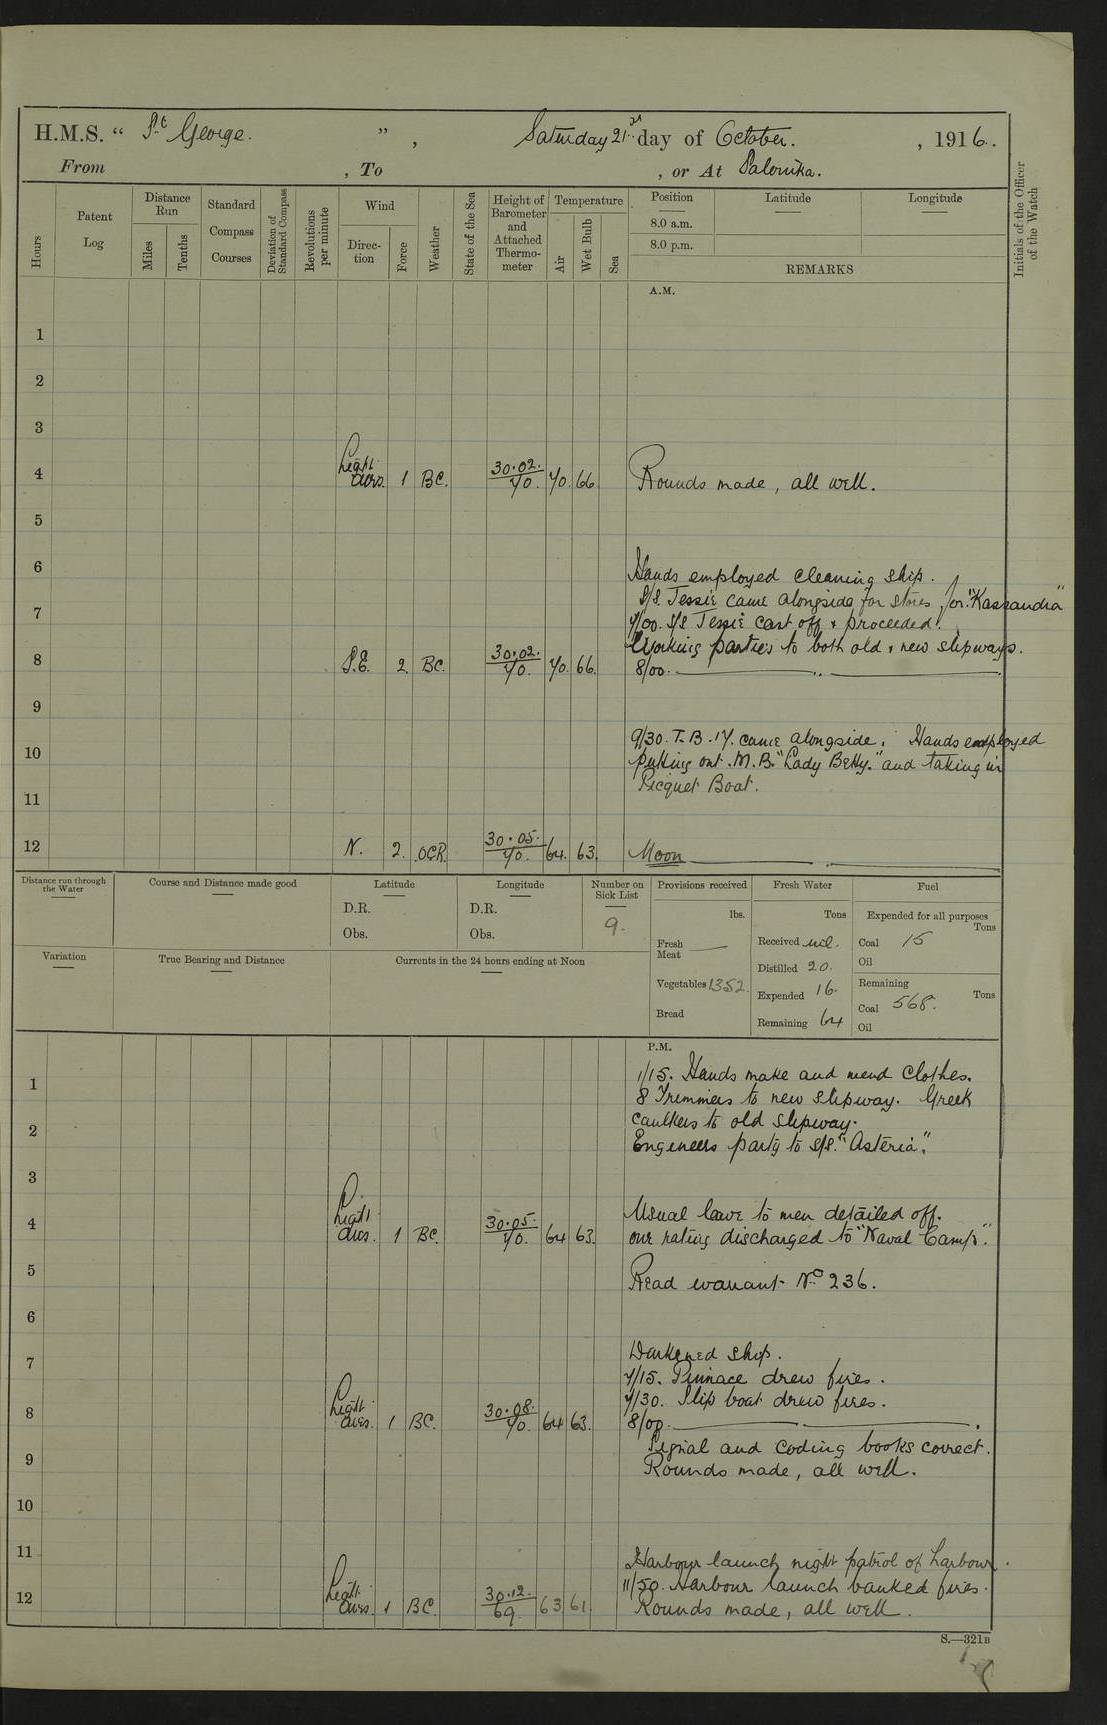 H.M.S. " St George. ", Saturday 21st day of October. , 1916.
From , To , or At Salonika.
Hours
Patent Log
Distance Run
Miles
Tenths
Standard Compass Courses
Deviation of Standard Compass
Revolutions per minute
Wind
Direc-tion
Force
Weather
State of the Sea
Height of Barometer and Attached Thermo-meter
Temperature
Air
Wet Bulb
Sea
Position
Latitude
Longitude
8.0 a.m.
8.0 p.m.
REMARKS
Initials of the Officer of the Watch
A.M.
1
2
3
4 Light airs. 1 BC. 30.02. 70. 70. 66. Rounds made, all well.
5
6
Hands employed cleaning ship.
S/S. Tessie came alongside for stores, for "Kassandra"
7
7/00. S/S Tessie cast off & proceeded.
Working parties to both old & new slipways.
8 S.E. 2. BC. 30.02. 70. 70. 66. 8/00.
9
9/30. T.B. 17. came alongside. Hands employed
10 putting out M.B. "Lady Betty." and taking in
Picquet Boat.
11
12 N. 2. OCR. 30.05. 70. 64. 63. Noon
Distance run through the Water
Course and Distance made good
Latitude
D.R.
Obs.
Longitude
D.R.
Obs.
Number on Sick List
9.
Provisions received
lbs.
Fresh Meat
Vegetables 1352.
Bread
Fresh Water
Tons
Received nil.
Distilled 20.
Expended 16.
Remaining 64
Fuel
Expended for all purposes
Tons
Coal 15
Oil
Remaining
Tons
Coal 568.
Oil
Variation
True Bearing and Distance
Currents in the 24 hours ending at Noon
P.M.
1 1/15. Hands make and mend clothes.
8 Trimmers to new slipway. Greek
2 caulkers to old slipway.
Engineers party to S/S. "Asteria."
3
4 Light airs. 1 BC. 30.05. 70. 64 63. Usual leave to men detailed off.
one rating discharged to "Naval Camp".
5 Read warrant No 236.
6
7 Darkened ship.
7/15. Pinnace drew fires.
7/30. Slip boat drew fires.
8 Light airs. 1 BC. 30.08. 70. 64 63. 8/00.
Signal and Coding books correct.
9 Rounds made, all well.
10
11
Harbour launch night patrol of harbour.
11/50. Harbour launch banked fires.
12 Light airs. 1 BC. 30.12. 69. 63 61. Rounds made, all well.
S.—321B